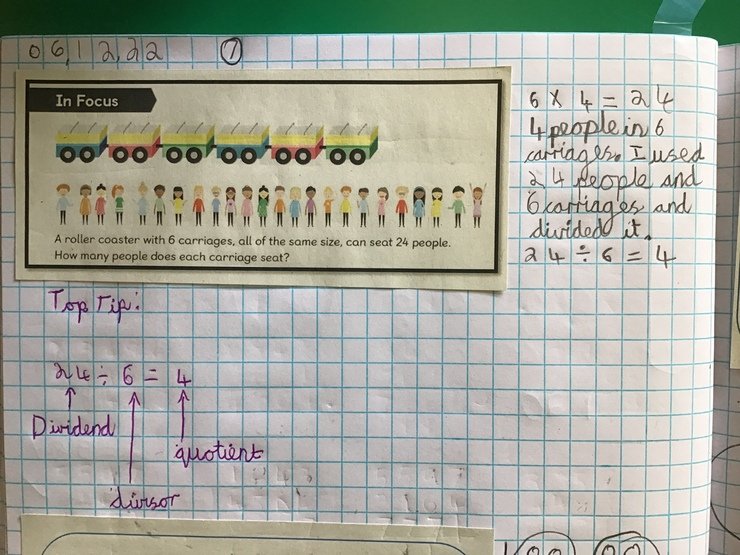 06,12,22 7
In Focus
A roller coaster with 6 carriages, all of the same size, can seat 24 people.
How many people does each carriage seat?
6 X 4 = 24
4 people in 6
carriages. I used
24 people and
6 carriages and
divided it.
24 ÷ 6 = 4
Top Tip:
24 ÷ 6 = 4
Dividend
quotient
divisor